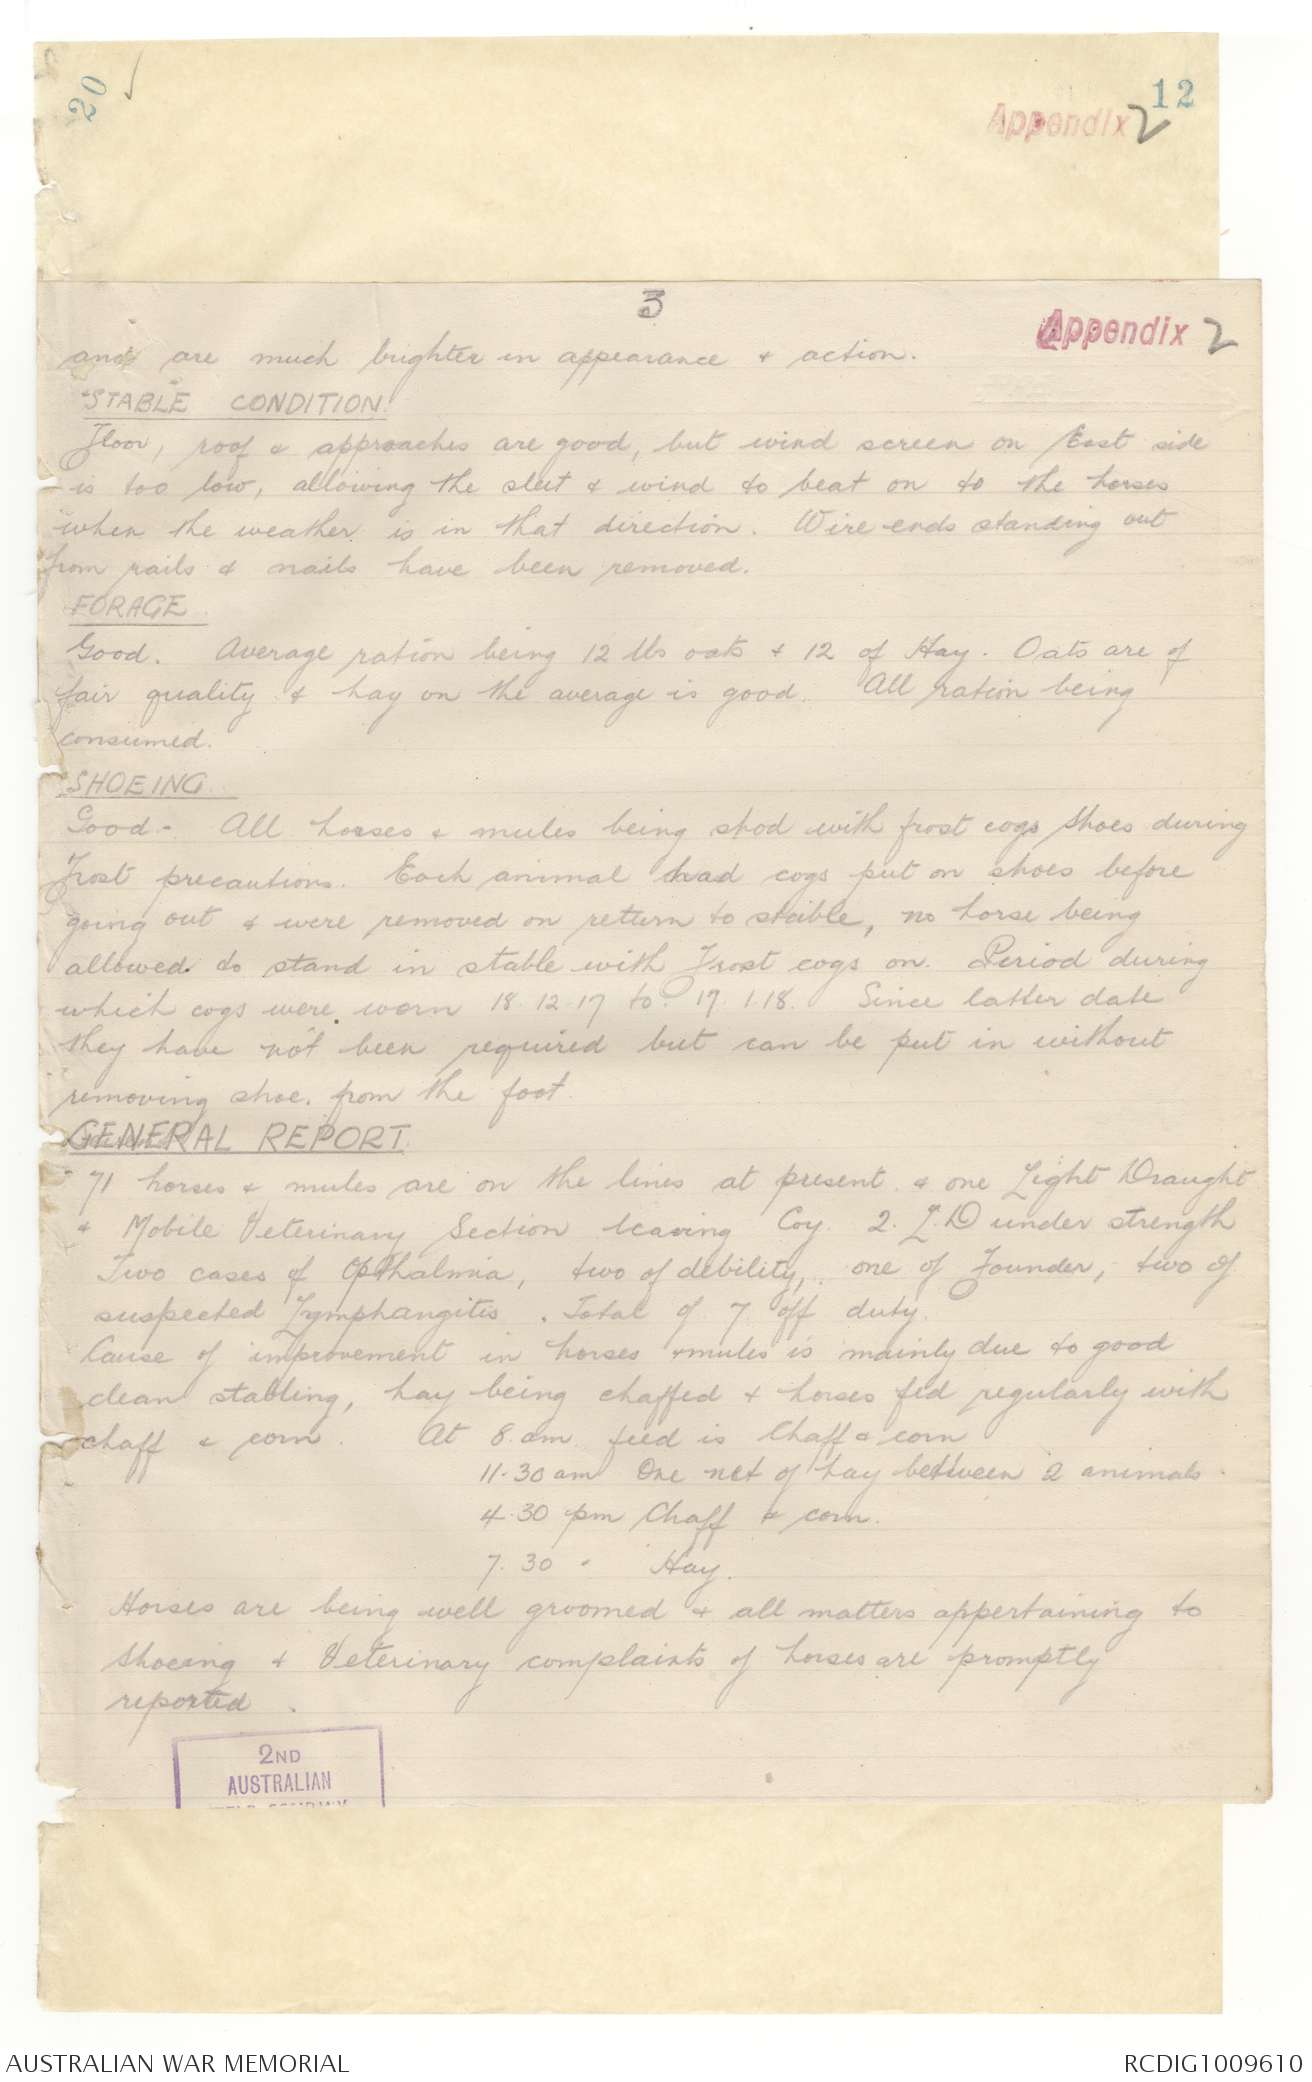 20
12
Appendix 2
3
Appendix 2
and are much brighter in appearance & action.
STABLE CONDITION.
Floor, roof & approaches are good, but wind screen on East side
is too low, allowing the sleet & wind to beat on to the horses
when the weather is in that direction. Wire ends standing out
from rails & nails have been removed.
FORAGE.
Good. Average ration being 12 lbs oats & 12 of Hay. Oats are of
fair quality & hay on the average is good. All ration being
consumed.
SHOEING
Good - All horses & mules being shod with frost cogs shoes during
Frost precautions. Each animal had cogs put on shoes before
going out & were removed on return to stable, no horse being
allowed to stand in stable with Frost cogs on. Period during
which cogs were worn 18.12.17 to 19.1.18. Since latter date
they have not been required but can be put in without
removing shoe. from the foot.
GENERAL REPORT.
71 horses & mules are on the lines at present & one Light Draught
& Mobile Veterinary Section leaving Coy. 2. L.D under strength
Two cases of Opthalmia, two of debility, one of Founder, two of
suspected Lymphangitis. Total of 7 off duty.
Cause of improvement in horses & mules is mainly due to good
clean stabling, hay being chaffed & horses fed regularly with
chaff & corn. At 8. am feed is Chaff & corn
11.30 am One net of hay between 2 animals.
4.30 pm Chaff & corn.
7.30 " Hay.
Horses are being well groomed & all matters appertaining to
shoeing & Veterinary complaints of horses are promptly
reported.
2ND
AUSTRALIAN
AUSTRALIAN WAR MEMORIAL
RCDIG1009610